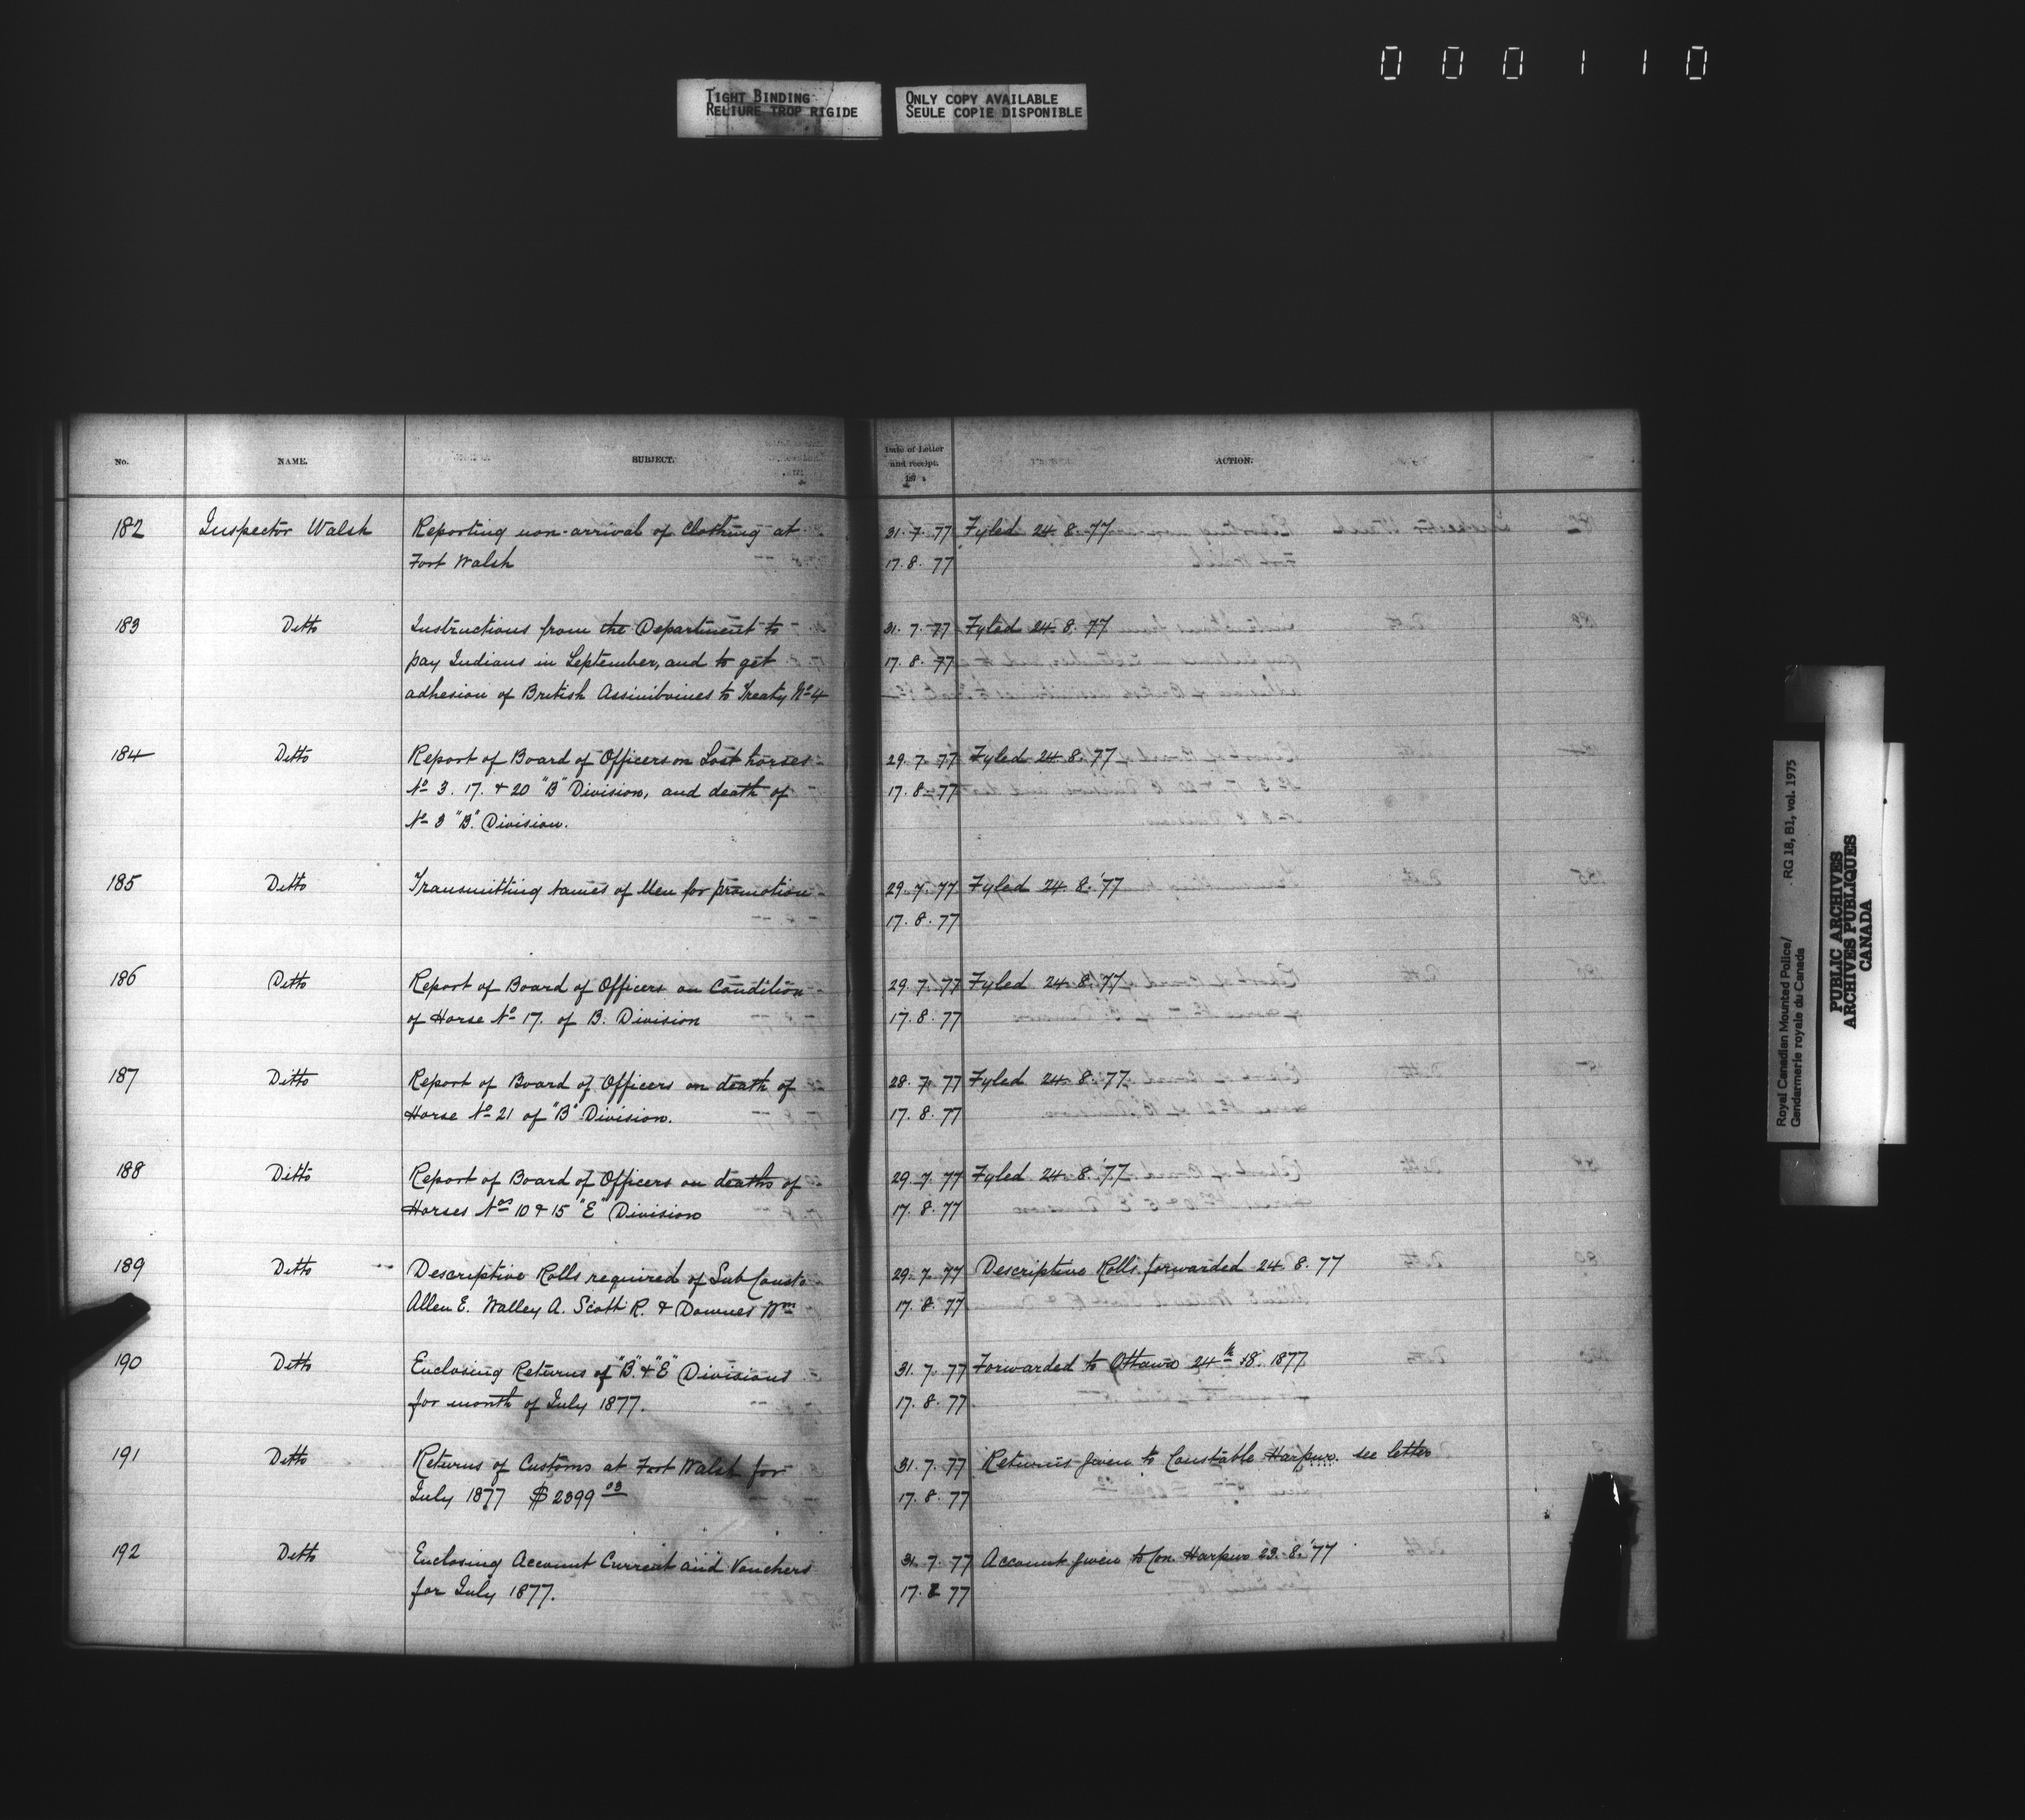 000110
TIGHT BINDING
RELIURE TROP RIGIDE
ONLY COPY AVAILABLE
SEULE COPIE DISPONIBLE
No. NAME. SUBJECT. Date of Letter and receipt. 187 ACTION.
182 Inspector Walsh Reporting non-arrival of Clothing at 31.7.77 Fyled 24.8.77
Fort Walsh 17.8.77
183 Ditto Instructions from the Department to 31.7.77 Fyled 24.8.77
pay Indians in September, and to get 17.8.77
adhesion of British Assiniboines to Treaty No 4
184 Ditto Report of Board of Officers on Lost horses 29.7.77 Fyled 24.8.77
No 3. 17. & 20 "B" Division, and death of 17.8.77
No 3 "B" Division.
185 Ditto Transmitting names of Men for promotion 29.7.77 Fyled 24.8.'77
17.8.77
186 Ditto Report of Board of Officers on Condition 29.7.77 Fyled 24.8.77
of Horse No 17. of B. Division 17.8.77
187 Ditto Report of Board of Officers on death of 28.7.77 Fyled 24.8.77
Horse No 21 of "B" Division. 17.8.77
188 Ditto Report of Board of Officers on deaths of 29.7.77 Fyled 24.8.'77
Horses Nos 10 & 15 "E" Division 17.8.77
189 Ditto Descriptive Rolls required of Sub Consts 29.7.77 Descriptive Rolls forwarded 24.8.77
Allen E. Walley A. Scott R. & Downes Wm 17.8.77
190 Ditto Enclosing Returns of "B" & "E" Divisions 31.7.77 Forwarded to Ottawa 24th 8. 1877
for month of July 1877. 17.8.77
191 Ditto Returns of Customs at Fort Walsh for 31.7.77 Returns given to Constable Harpur. see letter
July 1877 $2399 03 17.8.77
192 Ditto Enclosing Account Current and Vouchers 31.7.77 Account given to Con. Harpur 23.8.'77
for July 1877. 17.8 77
Royal Canadian Mounted Police/
Gendarmerie royale du Canada
RG 18, B1, vol. 1975
PUBLIC ARCHIVES
ARCHIVES PUBLIQUES
CANADA